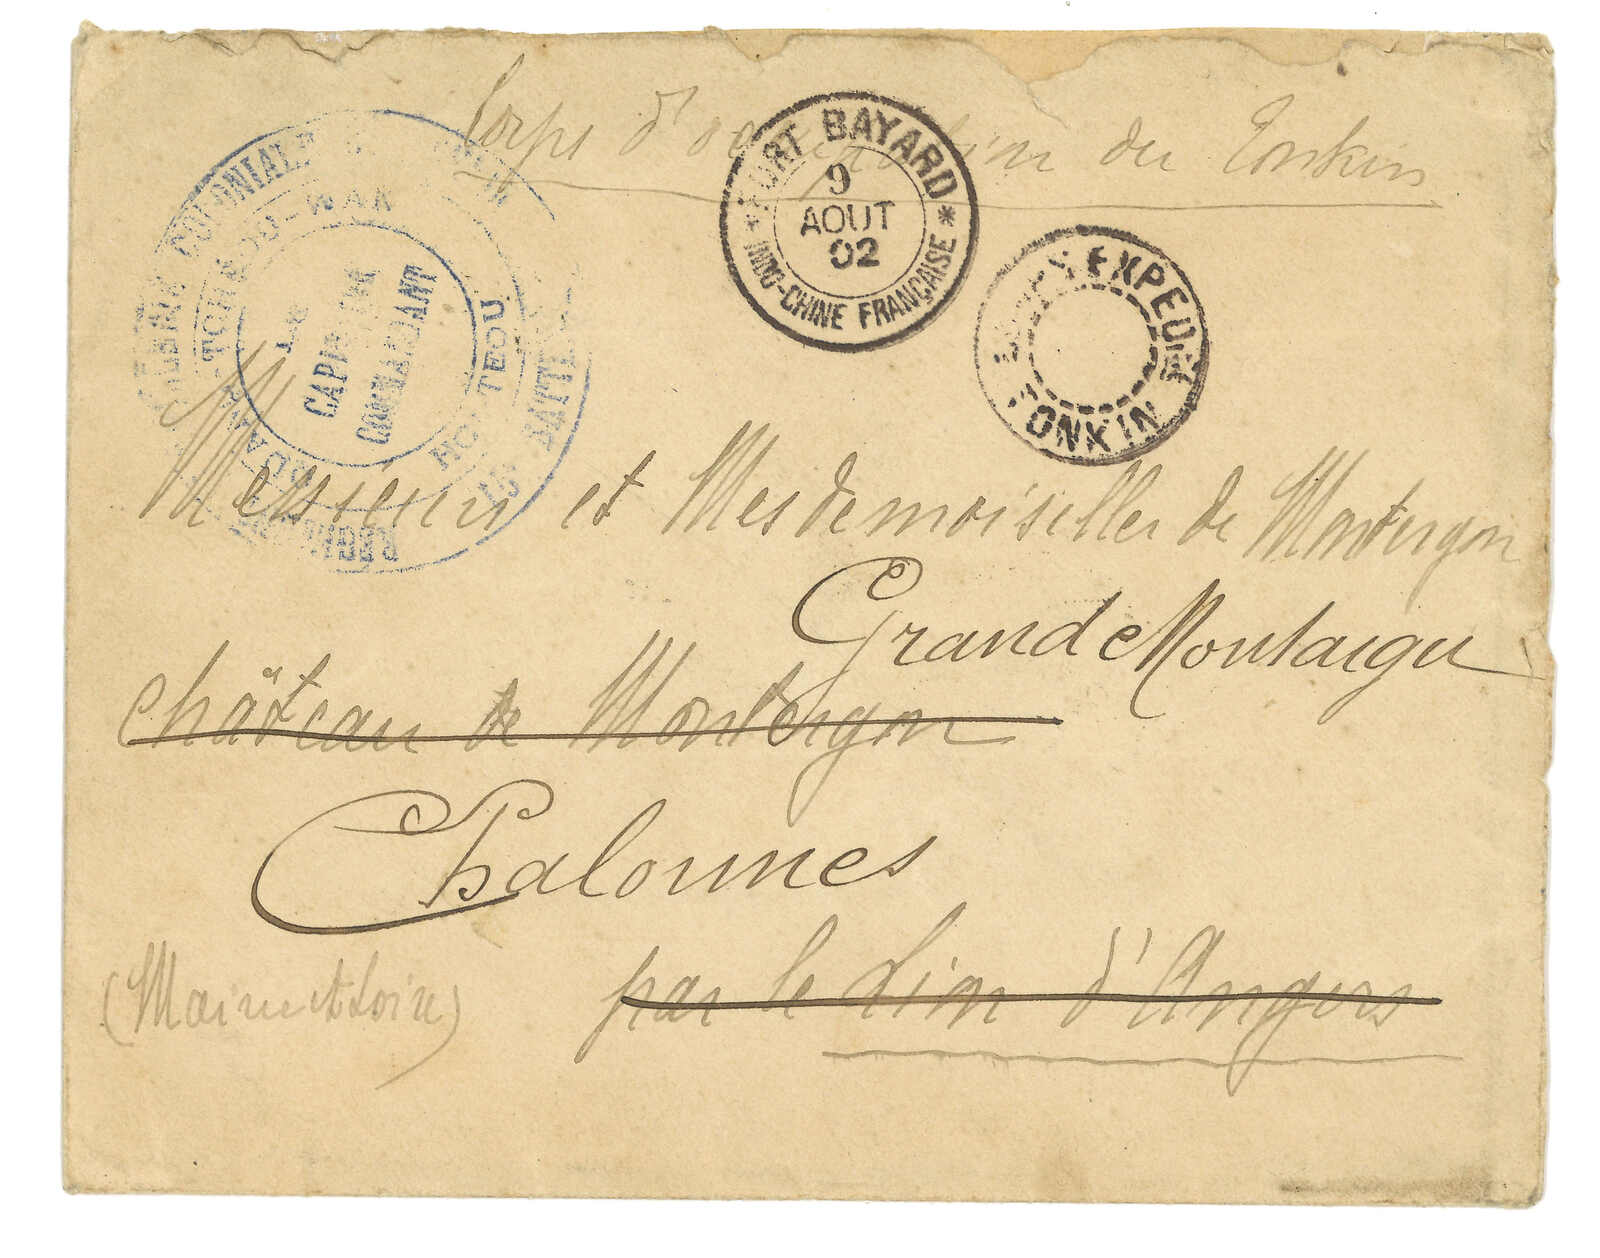 Corps d'occupation du Tonkin
FORT BAYARD
9
AOUT
02
INDO-CHINE FRANÇAISE
CORPS EXPEDRE
TONKIN
COLONIALE
TCHE-KOU-WAN
LE
CAPITAINE
COMMANDANT
HOI-TEOU
BATTERIE
Messieurs et Mesdemoiselles de Montergon
Grand Montaigu
Château de Montergon
Chalonnes
par le Lion d'Angers
(Maine et Loire)